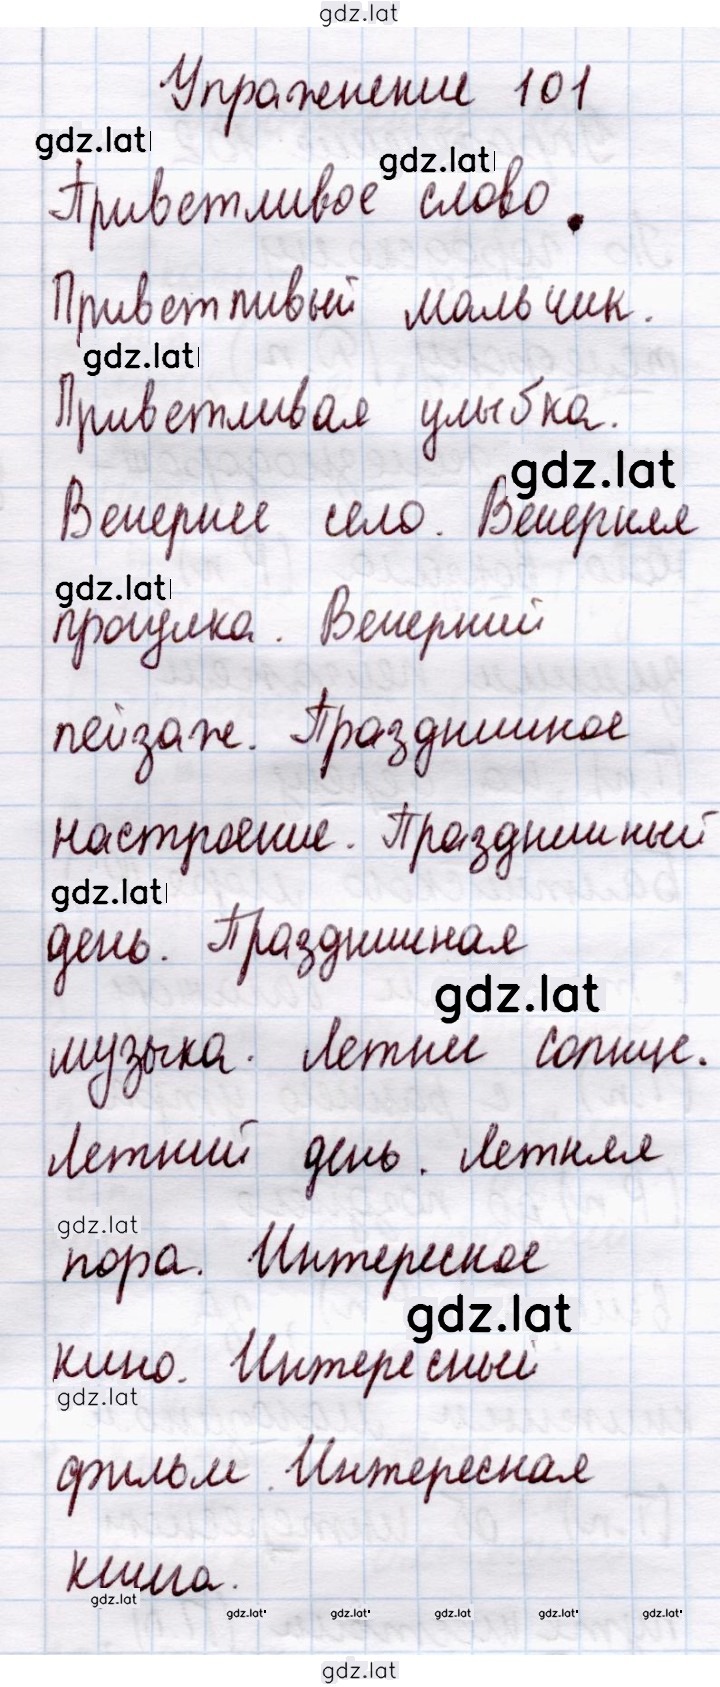 gdz.lat
Упражнение 101
gdz.lat
gdz.lat
Приветливое слово.
Приветливый мальчик.
gdz.lat
Приветливая улыбка.
gdz.lat
Вечернее село. Вечерняя
gdz.lat
прогулка. Вечерний
пейзаж. Праздничное
настроение. Праздничный
gdz.lat
день. Праздничная
gdz.lat
музыка. Летнее солнце.
Летний день. Летняя
gdz.lat
пора. Интересное
gdz.lat
кино. Интересный
gdz.lat
фильм. Интересная
книга.
gdz.lat
gdz.lat gdz.lat gdz.lat gdz.lat gdz.lat
gdz.lat